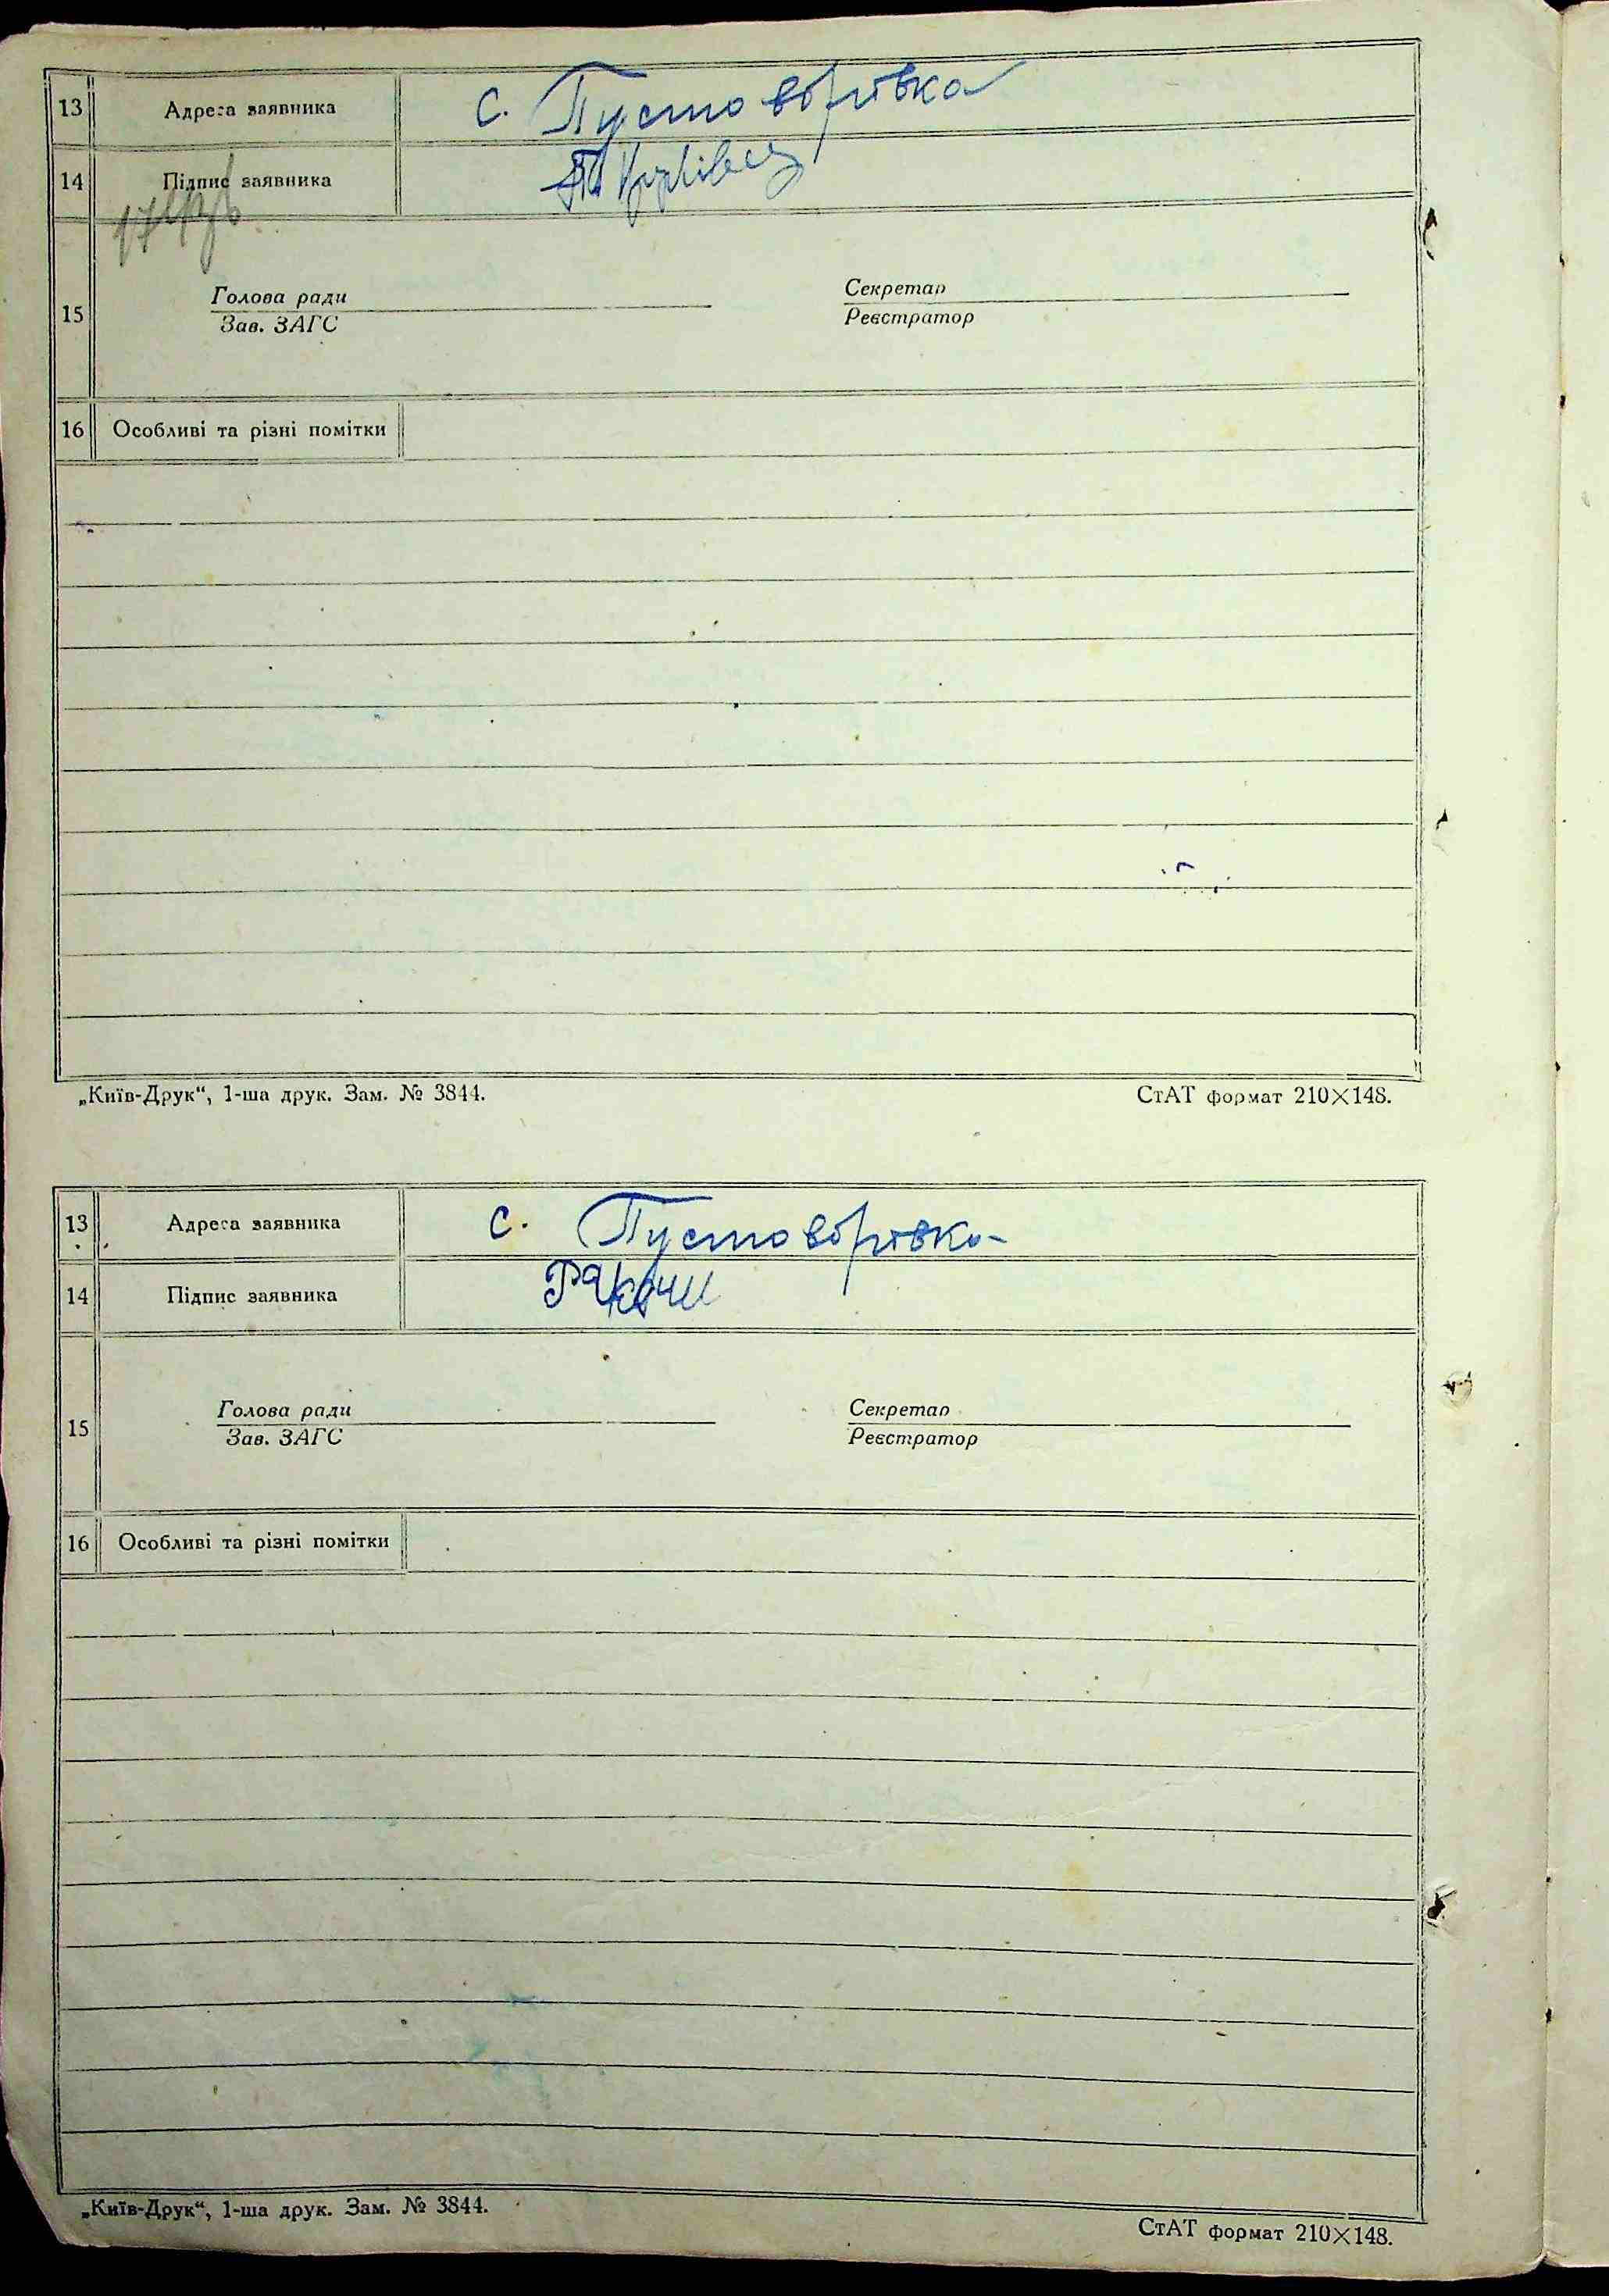 13 Адреса заявника с. Пустоворівка
14 Підпис заявника
15 Голова ради Секретар
Зав. ЗАГС Реєстратор
16 Особливі та різні помітки
„Київ-Друк“, 1-ша друк. Зам. № 3844. СтАТ формат 210×148.
13 Адреса заявника с. Пустоворівка
14 Підпис заявника
15 Голова ради Секретар
Зав. ЗАГС Реєстратор
16 Особливі та різні помітки
„Київ-Друк“, 1-ша друк. Зам. № 3844. СтАТ формат 210×148.